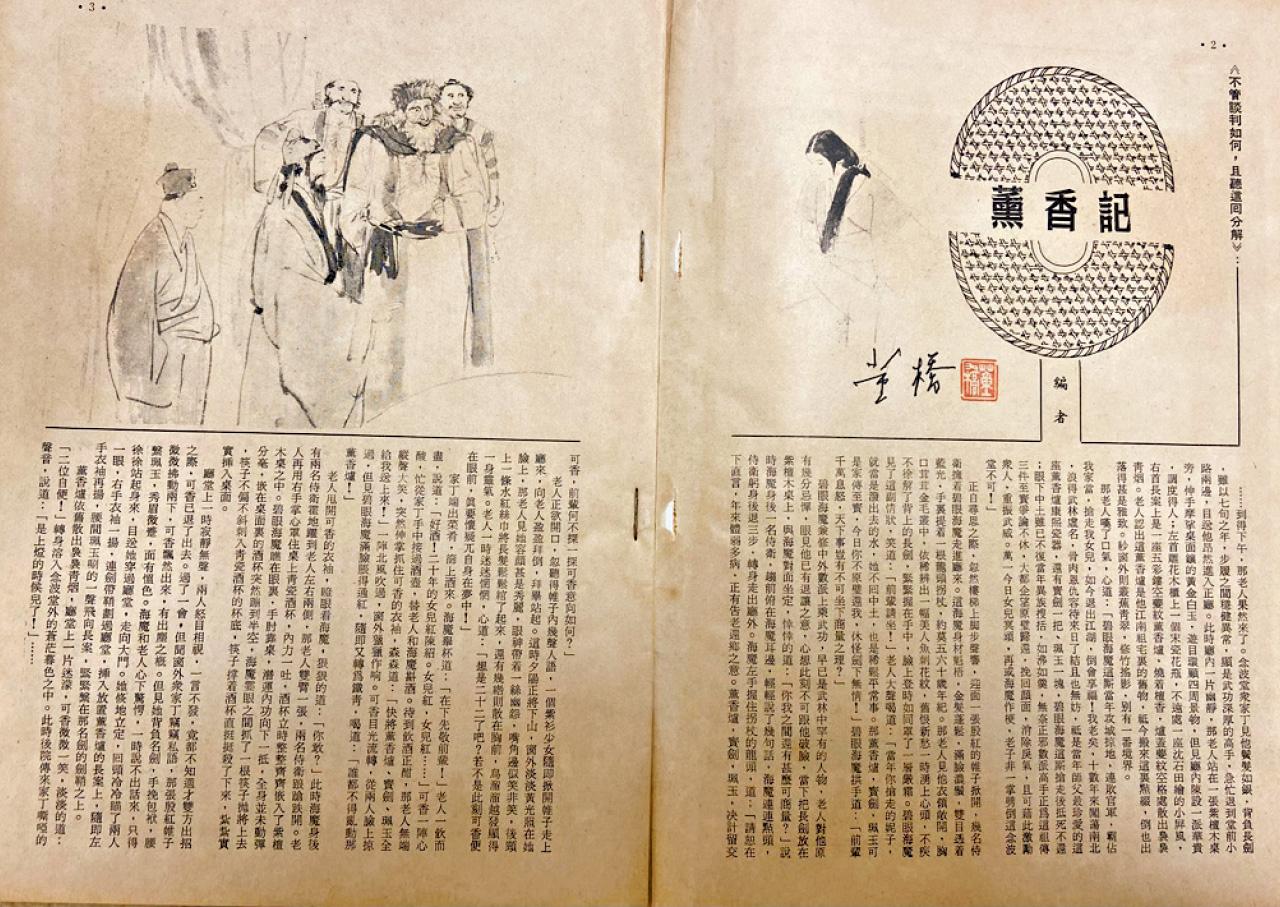 •2•
《不管談判如何，且聽這回分解》：
薰香記
編者
董橋
……到得下午，那老人果然來了。念波堂衆家丁見他鬢髮如銀，背負長劍
，雖以七旬之年，步履之間穩健異常，顯是武功深厚的高手，急忙退到堂前小
路兩邊，目送他昂然進入正廳。此時廳內一片幽靜，那老人站在一張紫檀木桌
旁，伸手摩挲桌面鑲的黃金白玉，遊目環顧四周景物，但見廳內陳設一派華貴
，調度得人；左首雕花木櫃上一個宋瓷花瓶，不遠處一座沈石田繪的小屏風，
右首長案上是一座五彩鏤空夔紋薰香爐，燒着檀香，爐蓋夔紋空格處散出裊裊
青烟。老人認出這薰香爐是他江南祖宅裏的舊物，祗今搬來這裏點綴，倒也出
落得甚是雅致。紗窗外則叢蕉青翠，修竹搖影，別有一番境界。
那老人嘆了口氣，心道：碧眼海魔這廝當年攻城掠地，連敗官軍，覇佔
我家當，搶走我女兒，如今退出江湖，倒會享福！我老矣，十數年來闖蕩南北
，浪得武林虛名，骨肉恩仇容待來日了結且也無妨，祗是當年師父最珍愛的這
座薰香爐康熙瓷器，還有寶劍一把、珮玉一塊，碧眼海魔這廝搶走後抵死不還
；眼下中土雖已不復當年異族搜括，如沸如羹，無奈正邪數派高手正爲這祖傳
三件至寶爭論不休，大都企望原璧歸還，挽回顏面，消除戾氣，且可藉此激勵
衆人，重振武威。萬一今日女兒冥頑，再或海魔作梗，老子非一掌劈倒這念波
堂不可！」
正自尋思之際，忽然樓梯上脚步聲響，迎面一張殷紅的帷子掀開，幾名侍
衛擁着碧眼海魔走進廳來。這海魔身材魁梧，金髮蓬鬆，滿臉濃鬚，雙目透着
藍光，手裏提着一根龍頭拐杖，約莫五六十歲年紀。那老人見他衣領敞開，胸
口茸茸金毛叢中，依稀辨出一幅美人魚刺花紋，舊恨新愁一時湧上心頭，不疾
不徐解了背上的長劍，緊緊握在手中，臉上登時如同罩了一層嚴霜。碧眼海魔
見了這副情狀，笑道：「前輩請坐！」老人聲喝道：「當年你搶走的妮子，
就當是潑出去的水，她不回中土，也是稀鬆平常事。那薰香爐，寶劍，珮玉可
是家傳至寶，今日你不原璧還我，休怪劍下無情！」碧眼海魔拱手道：「前輩
千萬息怒，天下事豈有不可坐下商量之理？」
碧眼海魔兼修中外數派上乘武功，早已是武林中罕有的人物，老人對他原
有幾分忌憚，眼見他已有退讓之意，心想此刻不可跟他破臉，當下把長劍放在
紫檀木桌上，與海魔對面坐定，悻悻的道：「你我之間還有甚麼可商量？」說
時海魔身後一名侍衛，趨前俯在海魔耳邊，輕輕說了幾句話，海魔連連點頭，
侍衛躬身後退三步，轉身走出廳外。海魔左手握住拐杖的龍頭，道：「請恕在
下直言，年來體弱多病，正有告老還鄉之意。薰香爐，寶劍，珮玉，決計留交
•3•
可香，前輩何不探一探可香意向如何？」
老人正欲開口，忽聽得帷子內幾聲人語，一個紫衫少女隨即掀開帷子走上
廳來，向老人盈盈拜倒，拜畢站起。這時夕陽正將下山，窗外淡淡黃光照在她
臉上，那老人見她容顏甚是秀麗，眼神帶着一絲幽怨，嘴角邊似笑非笑，後頸
上一條水紅絲巾將長髮鬆鬆綰了起來，還有幾絡則散在胸前，烏溜溜越發顯得
一身靈氣。老人一時迷迷惘惘，心道：「想是二十二了吧？若不是此刻可香便
在眼前，眞要懷疑兀自身在夢中！」
家丁端出菜肴，篩上酒來。海魔舉杯道：「在下先敬前輩！」老人一飲而
盡，說道：「好酒！二十年的女兒紅陳紹。女兒紅，女兒紅……」可香一陣心
酸，忙從家丁手中接過酒壺，替老人和海魔斟酒。待到飲酒正酣，那老人無端
縱聲大笑，突然伸掌抓住可香的衣袖，森森道：「快將薰香爐、寶劍、珮玉全
給我送上來！」一陣北風吹過，窗外獵獵作响。可香目光流轉，從兩人臉上掠
過，但見碧眼海魔滿臉脹得通紅，隨即又轉爲鐵靑，喝道：「誰都不得亂動那
薰香爐！」
老人甩開可香的衣袖，瞪眼看着海魔，狠狠的道：「你敢？」此時海魔身後
有兩名侍衛霍地躍到老人左右兩側，那老人雙臂一張，兩名侍衛踉蹌跌開。老
人再用右手掌心罩住桌上青瓷酒杯，內力一吐，酒杯立時整整齊齊嵌入了紫檀
木桌之中。碧眼海魔瞧在眼裏，手肘靠桌，潛運內功向下一抵，全身並未動彈
分毫，嵌在桌面裏的酒杯突然蹦到半空，海魔霎眼之間抓了一根筷子拋將上去
，筷子不偏不斜刺入青瓷酒杯的杯底，筷子撐着酒杯直挺挺殺了下來，紥紥實
實揷入桌面。
廳堂上一時寂靜無聲，兩人怒目相視，一言不發，竟都不知道才雙方出招
之際，可香已退了出去。過了一會，但聞窗外衆家丁竊竊私語，那張殷紅帷子
微微拂動兩下，可香飄然出來，有出塵之槪。但見她背負名劍，手挽包袱，腰
繫珮玉，秀眉微蹙，面有慍色。海魔和老人心下驚愕，一時說不出話來，只得
徐徐站起身來，目送她穿過廳堂，走向大門。她條地立定，回頭冷冷瞄了兩人
一眼，右手衣袖一揚，連劍帶鞘劃過廳堂，揷入放置薰香爐的長案上，隨即左
手衣袖再揚，腰間珮玉唰的一聲飛向長案，緊緊繫在那名劍的劍鞘之上。
薰香爐依舊散出裊裊青烟，廳堂上一片迷濛，可香微微一笑，淡淡的道：
「二位自便！」轉身溶入念波堂外的蒼茫暮色之中。此時後院傳來家丁嘶啞的
聲音，說道：「是上燈的時候兒了！」……